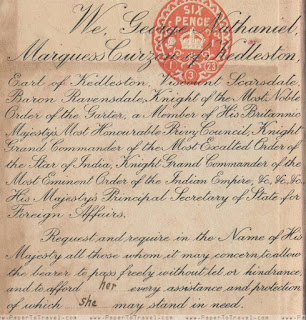 We, George Nathaniel,
SIX
PENCE
Marquess Curzon of Kedleston,
Earl of Kedleston, Viscount Scarsdale,
Baron Ravensdale, Knight of the Most Noble
Order of the Garter, a Member of His Britannic
Majesty's Most Honourable Privy Council, Knight
Grand Commander of the Most Exalted Order of
the Star of India, Knight Grand Commander of the
Most Eminent Order of the Indian Empire, &c, &c, &c
His Majesty's Principal Secretary of State for
Foreign Affairs.
Request and require in the Name of His
Majesty all those whom it may concern to allow
the bearer to pass freely without let or hindrance,
and to afford her every assistance and protection
of which she may stand in need.